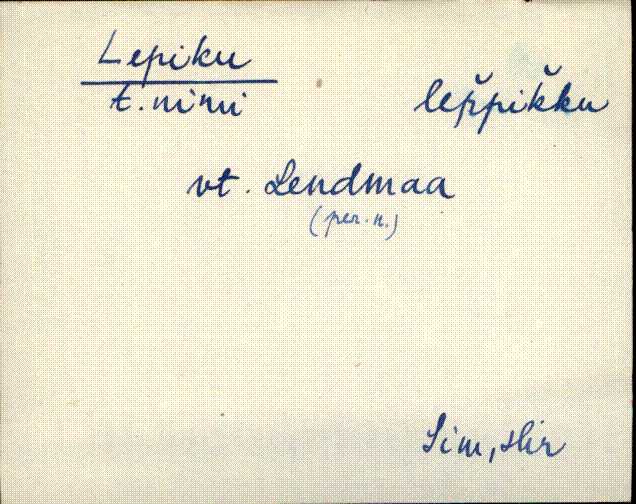 Lepiku
t. nimi
lep̆pik̆ku
vt. Lendmaa
(per. n.)
Sim,